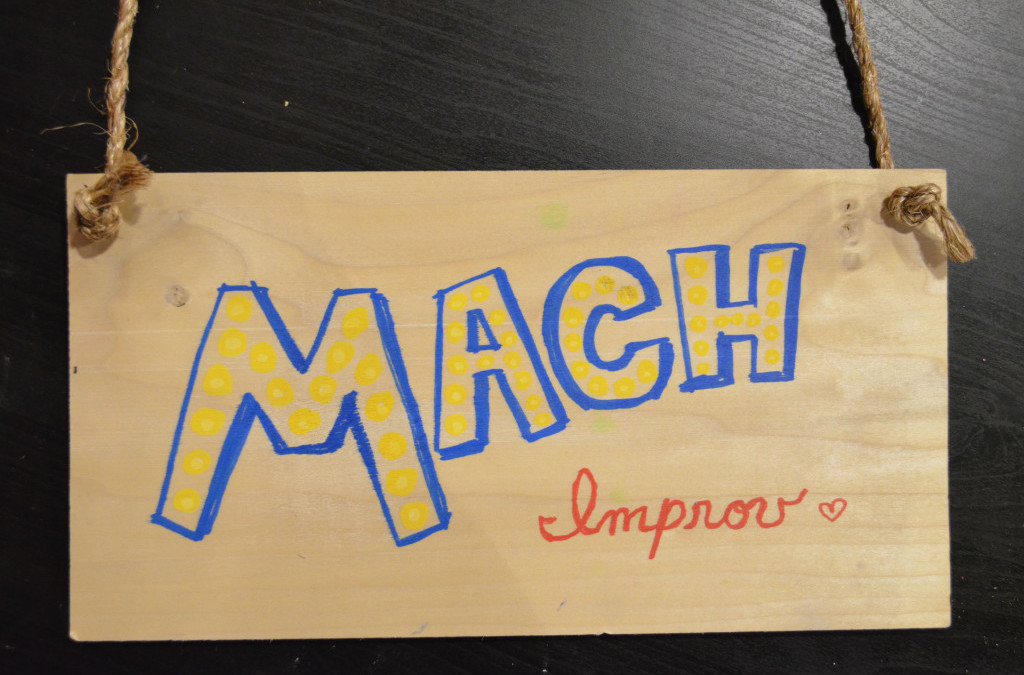 MACH
Improv ♡